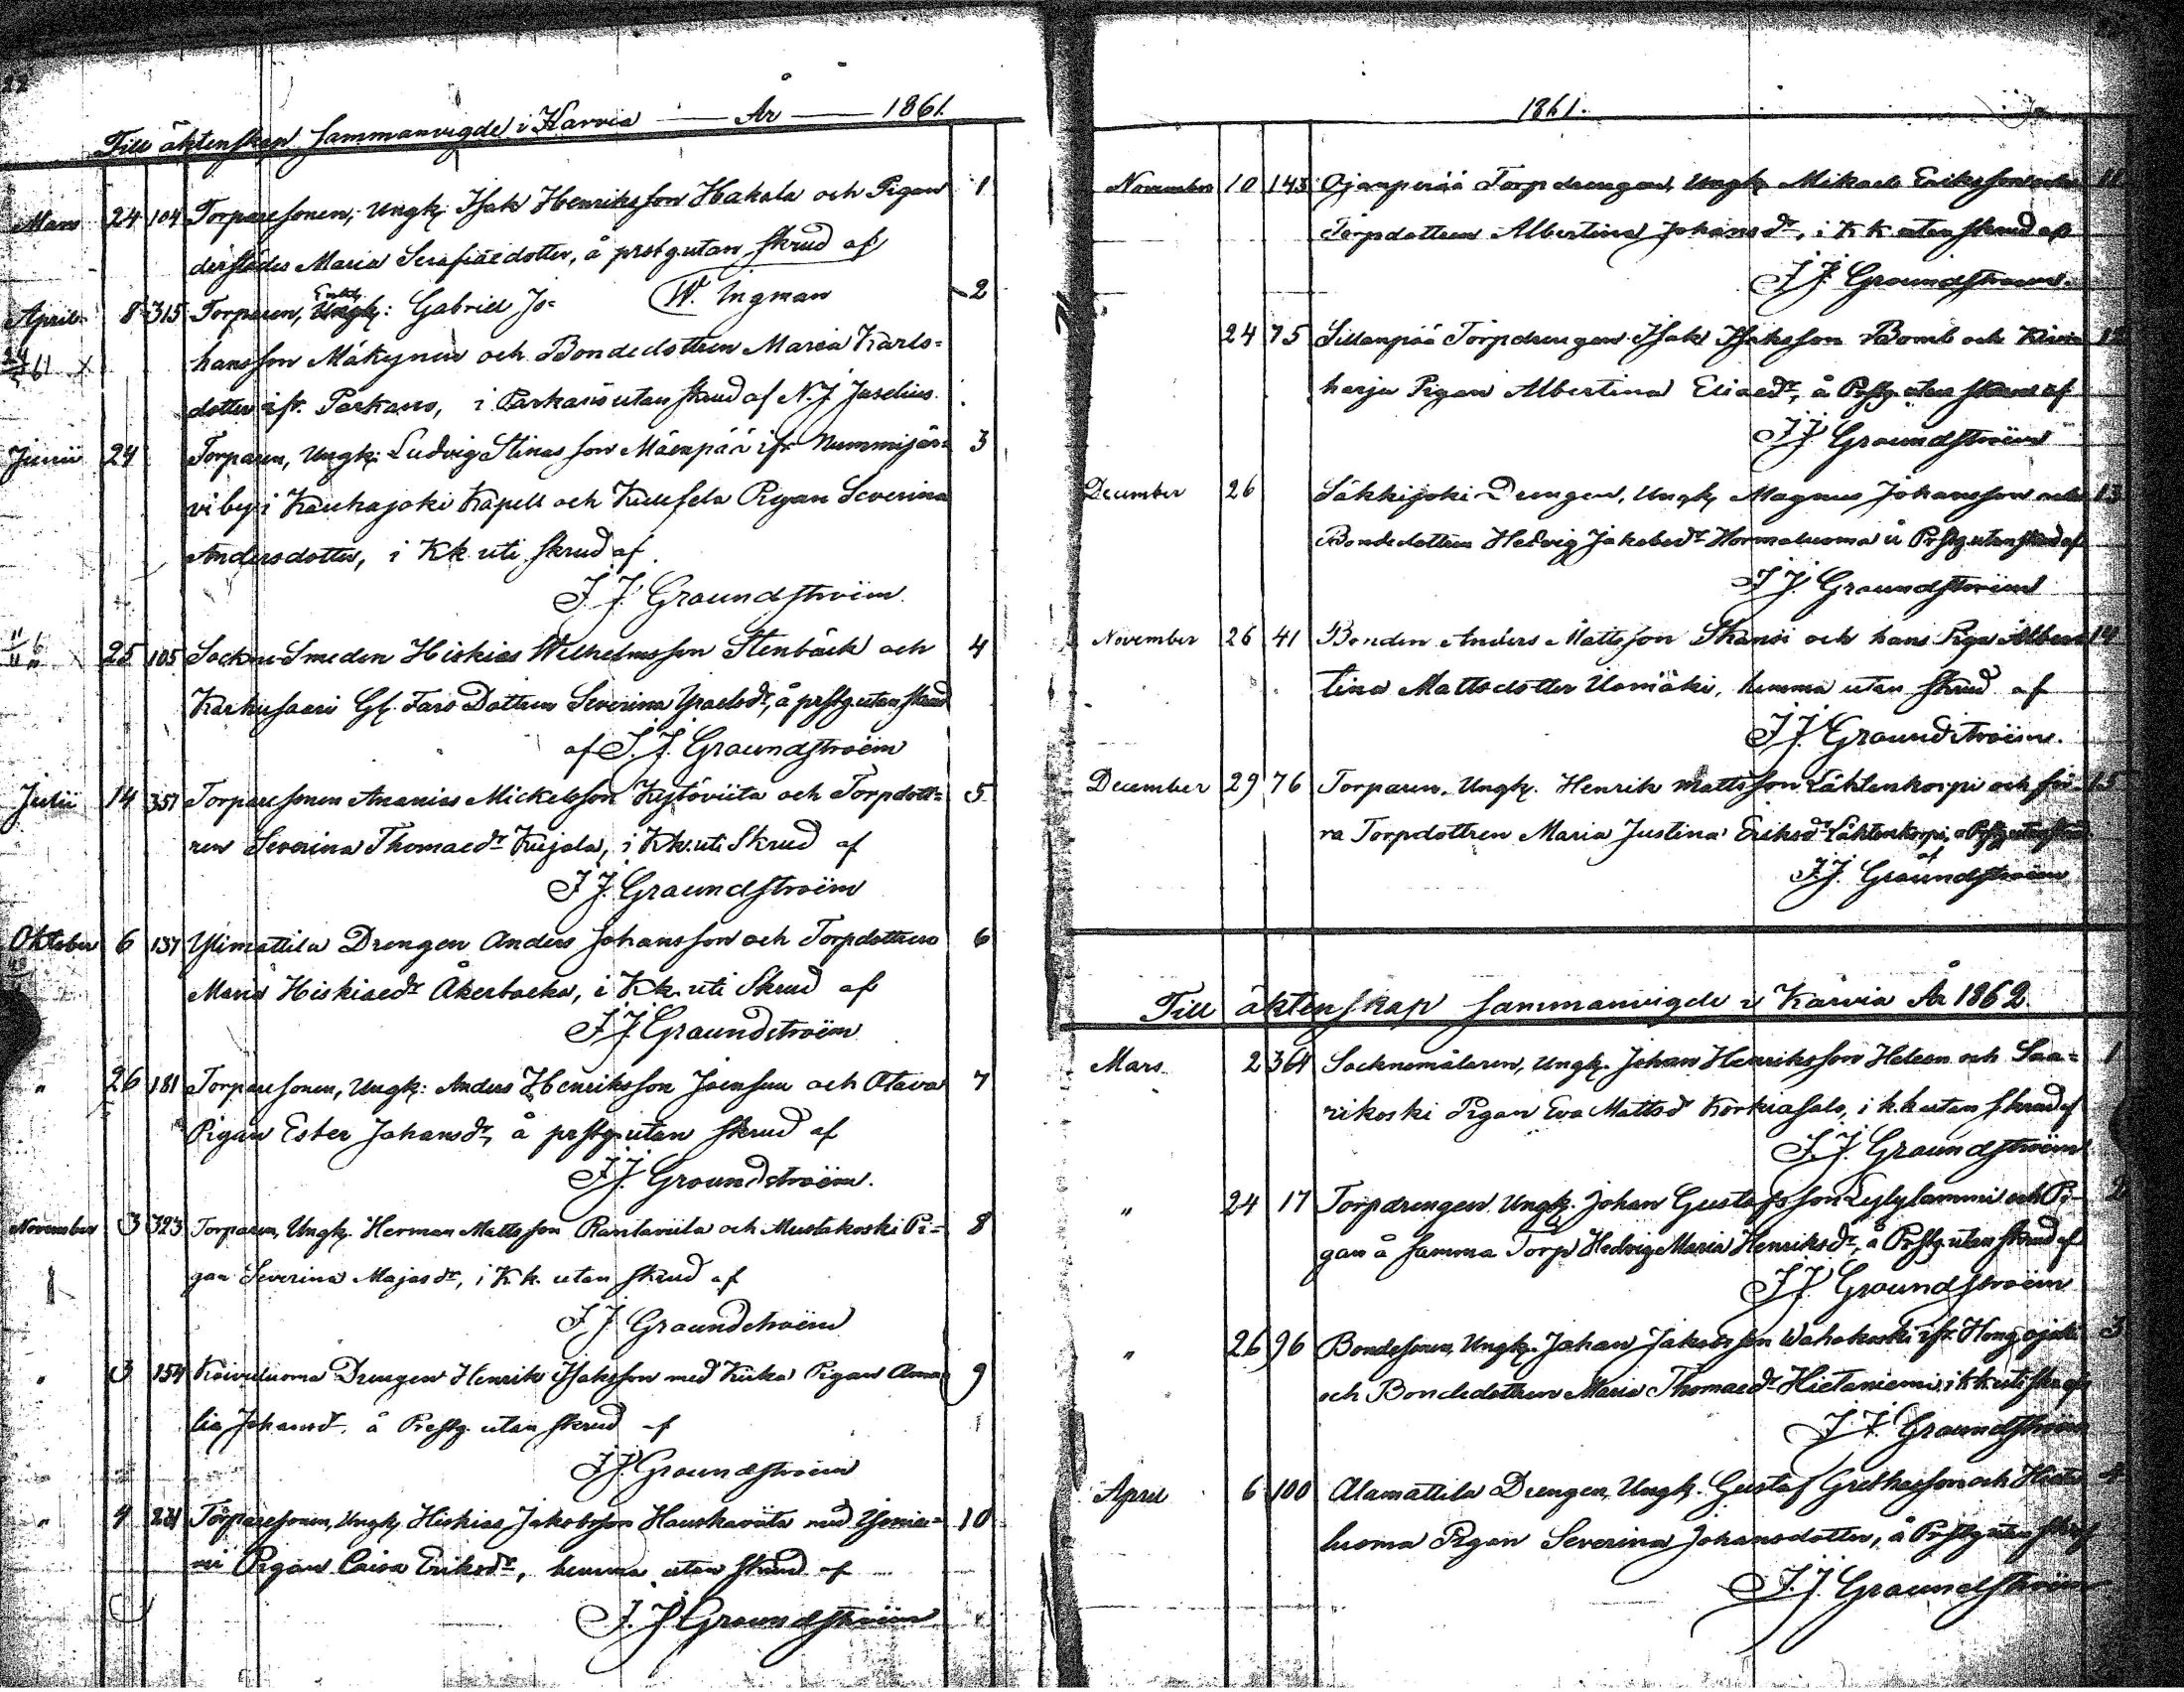 22
Till äktenskap Sammanvigde i Karvia — År — 1861.
Mars 24 104 Torparesonen, Ungk: Isak Henriksson Hakala och Pigan 1
derstädes Maria Serafiaedotter, å prstg. utan skrud af
W. Ingman
April 8 315 Torparen, Enkl. Ungk: Gabriel Jo- 2
hansson Mäkynen och Bondedottren Maria Karls-
dotter ifr. Parkano, i Parkano utan skrud af N. J. Juselius.
Junii 24 Torparen, Ungk: Ludvig Stinasson Mäenpää ifr. Nummijär- 3
vi by i Kauhajoki Kapell och Pigan Severina
Andersdotter, i Kk. uti skrud af
J. J. Graundstroëm
25 105 Sockne-Smeden Hiskias Wilhelmsson Stenbäck och 4
Karhusaari Gl. Fars Dottren Severina Israelsdr, å prstg. utan skrud
af J. J. Graundstroëm
Julii 14 351 Torparesonen Ananias Mickelsson Kytöviita och Torpdott- 5
ren Severina Thomaedr Kujala, i Kk. uti Skrud af
J. J. Graundstroëm
Oktober 6 137 Ylimattila Drengen Anders Johansson och Torpdottren 6
Maria Hiskiaedr Åkerbacka, i Kk. uti Skrud af
J. J. Graundstroëm
" 26 181 Torparesonen, Ungk: Anders Henriksson Joensuu och Otava 7
Pigan Ester Johansdr, å prstg. utan Skrud af
J. J. Graundstroëm.
November 3 323 Torparen, Ungk. Herman Mattsson Rantaviita och Mustakoski Pi- 8
gan Severina Majasdr, i Kk. utan skrud af
J. J. Graundstroëm
" 3 154 Koivuluoma Drengen Henrik Isaksson med Kiika Pigan Ama- 9
lia Johansdr. å Prestg. utan skrud af
J. J. Graundstroëm
" 4 Torparesonen, Ungk. Hiskias Jakobsson Hauskaviita med 10
Pigan Caisa Eriksdr, hemma utan skrud af
J. J. Graundstroëm
1861.
November 10 143 Ojanperää Torpdrengen, Ungk Mikael Eriksson och 11
Torpdottren Albertina Johansdr, i Kk utan skrud af
J. J. Graundstroëm.
24 75 Sillanpää Torpdrengen Isak Isaksson Bomb och Kivi- 12
harju Pigan Albertina Eliaedr, å Prstg. utan skrud af
J. J. Graundstroëm
December 26 Säkkijoki Drengen, Ungk. Magnus Johansson och 13
Bondedottren Hedvig Jakobsdr Hormaluoma å Prstg. utan skrud af
J. J. Graundstroëm
November 26 41 Bonden Anders Mattsson Skansi och hans Piga Alber- 14
tina Mattsdotter Uomäki, hemma utan skrud af
J. J. Graundstroëm.
December 29 76 Torparen, Ungk. Henrik Mattsson Lähteenkorpi och för- 15
ra Torpdottren Maria Justina Eriksdr Lähteenkorpi, å Prstg. utan skrud
af
J. J. Graundstroëm
Till äktenskap sammanvigde i Karvia År 1862.
Mars 2 364 Socknemålaren, Ungk. Johan Henriksson Heleen och Saa- 1
rikoski Pigan Eva Mattsdr Korkiasalo, i k.k. utan skrud af
J. J. Graundstroëm
" 24 17 Torpdrengen Ungk. Johan Gustafsson Lylylammi och Pi- 2
gan å samma Torp Hedvig Maria Henriksdr, å Prstg. utan skrud af
J. J. Graundstroëm
" 26 96 Bondesonen, Ungk. Johan Jakobsson Wahokoski ifr. Hongojoki 3
och Bondedottren Maria Thomaedr Hietaniemi, i k.k. uti skr. af
J. J. Graundstroëm
April 6 100 Alamattila Drengen, Ungk. Gustaf Grethasson och 4
luoma Pigan Severina Johansdotter, å Prstg. utan skr. af
J. J. Graundstroëm